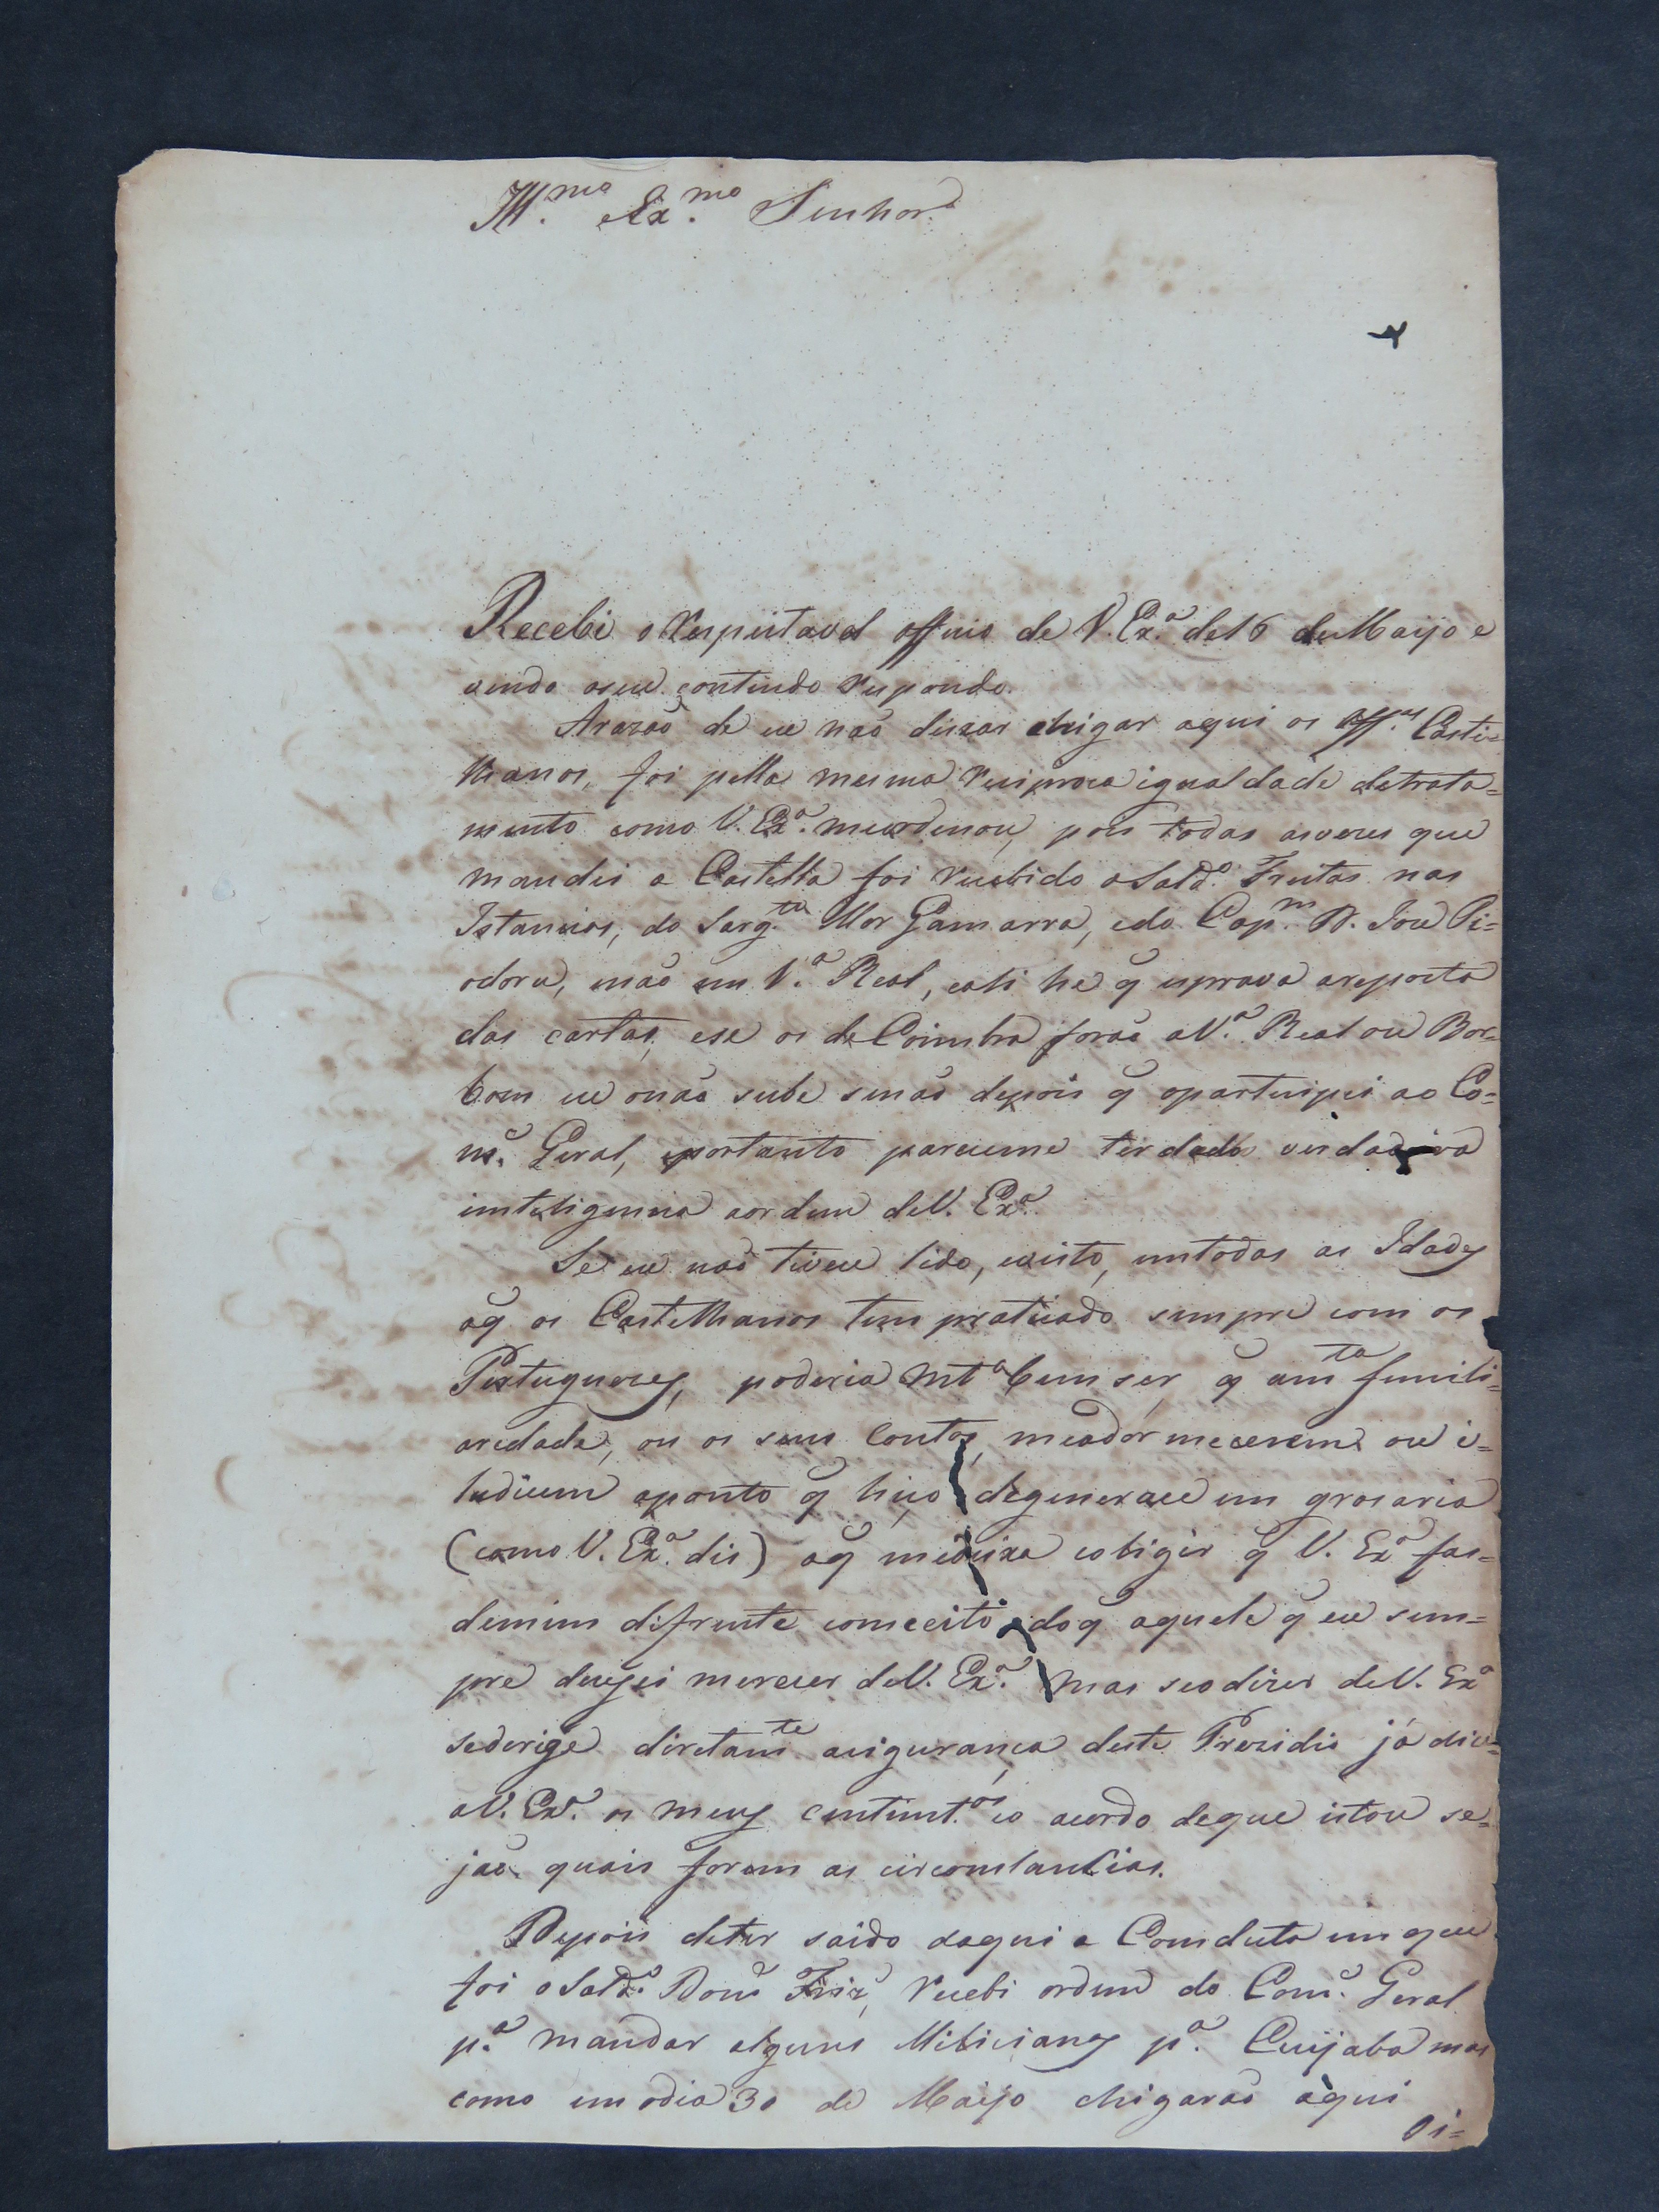 Ill.mo e Ex.mo Senhor
Recebi o respeitavel officio de V. Ex.a de 16 de Maijo e
vendo oseu contiudo respondo.
Arazaõ de eu naõ deixar chigar aqui os Off.es Caste=
lhanos, foi pella mesma reciproca igualdade detrata=
mento como V. Ex.a meordenou, pois todas asvezes que
mandei a Castella foi recebido oSold.o Freitas nas
Istancias, do Sarg.to Mor Gamarra, edo Cap.m D. Joze Ti=
odoro, enaõ em V.a Real, eali he q esprava aresposta
das cartas, ese os de Coimbra foraõ aV.a Real ou Bor=
bom eu onaõ sube senaõ depois q oparticipei ao Co=
m.e Geral, eportanto pareceme ter dado verdadeira
inteligencia aordem deV. Ex.a
Se eu naõ tivece lido, evisto, emtodas as Idades
oq os Castelhanos tem praticado sempre com os
Portuguezes, poderia mt.o bem ser, q am.ta famili=
aredade, ou os seus Contos, meadormececem ou i=
ludicem aponto q hiço degenerace em grosaria
(como V. Ex.a dis) oq medeixa coligir q V. Ex.a fas=
demim difrente comceito doq aquele q eu sem=
pre dezejei merecer deV. Ex.a mas seodizer deV. Ex.a
sederige diretam.te asigurança deste Prezidio já dice
aV. Ex.a os meus centimt.os eo acordo deque istou se=
jaõ quais forem as circomstancias.
Depois deter saido daqui a Comduta emque
foi oSold.o Dom.o recebi ordem do Com.e Geral
p.a mandar alguns Milicianos p.a Cuijaba mas
como em odia 30 de Maijo chigaraõ aqui
Oi=